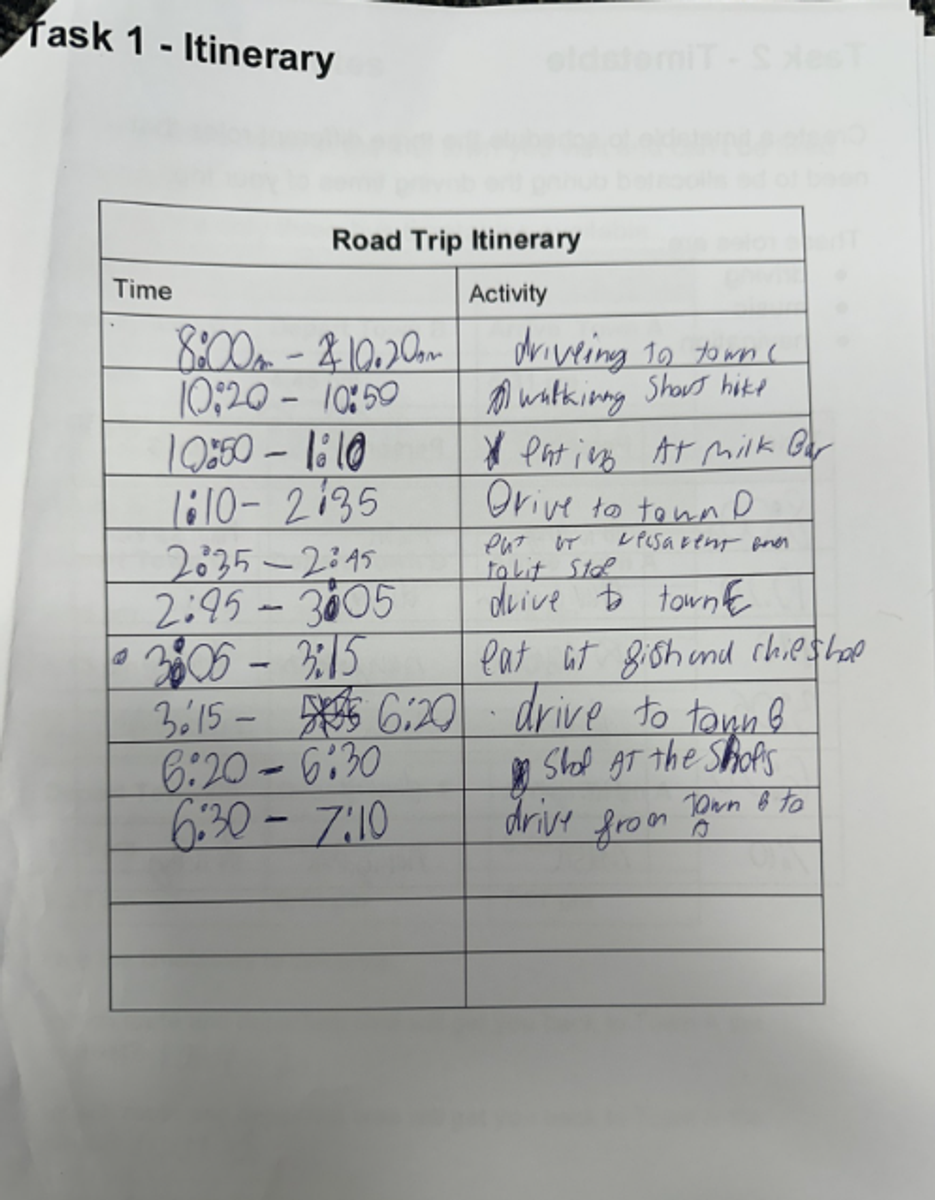 Task 1 - Itinerary
Road Trip Itinerary
Time Activity
8:00am - 10:20am driveing to town C
10:20 - 10:50 walking Short hike
10:50 - 1:10 eating At milk Bar
1:10 - 2:35 Drive to town D
2:35 - 2:45 eat at
2:45 - 3:05 drive to town E
3:05 - 3:15 eat at fish and
3:15 - 6:20 drive to town B
6:20 - 6:30 Stop AT the Shops
6:30 - 7:10 drive from Town B to
A